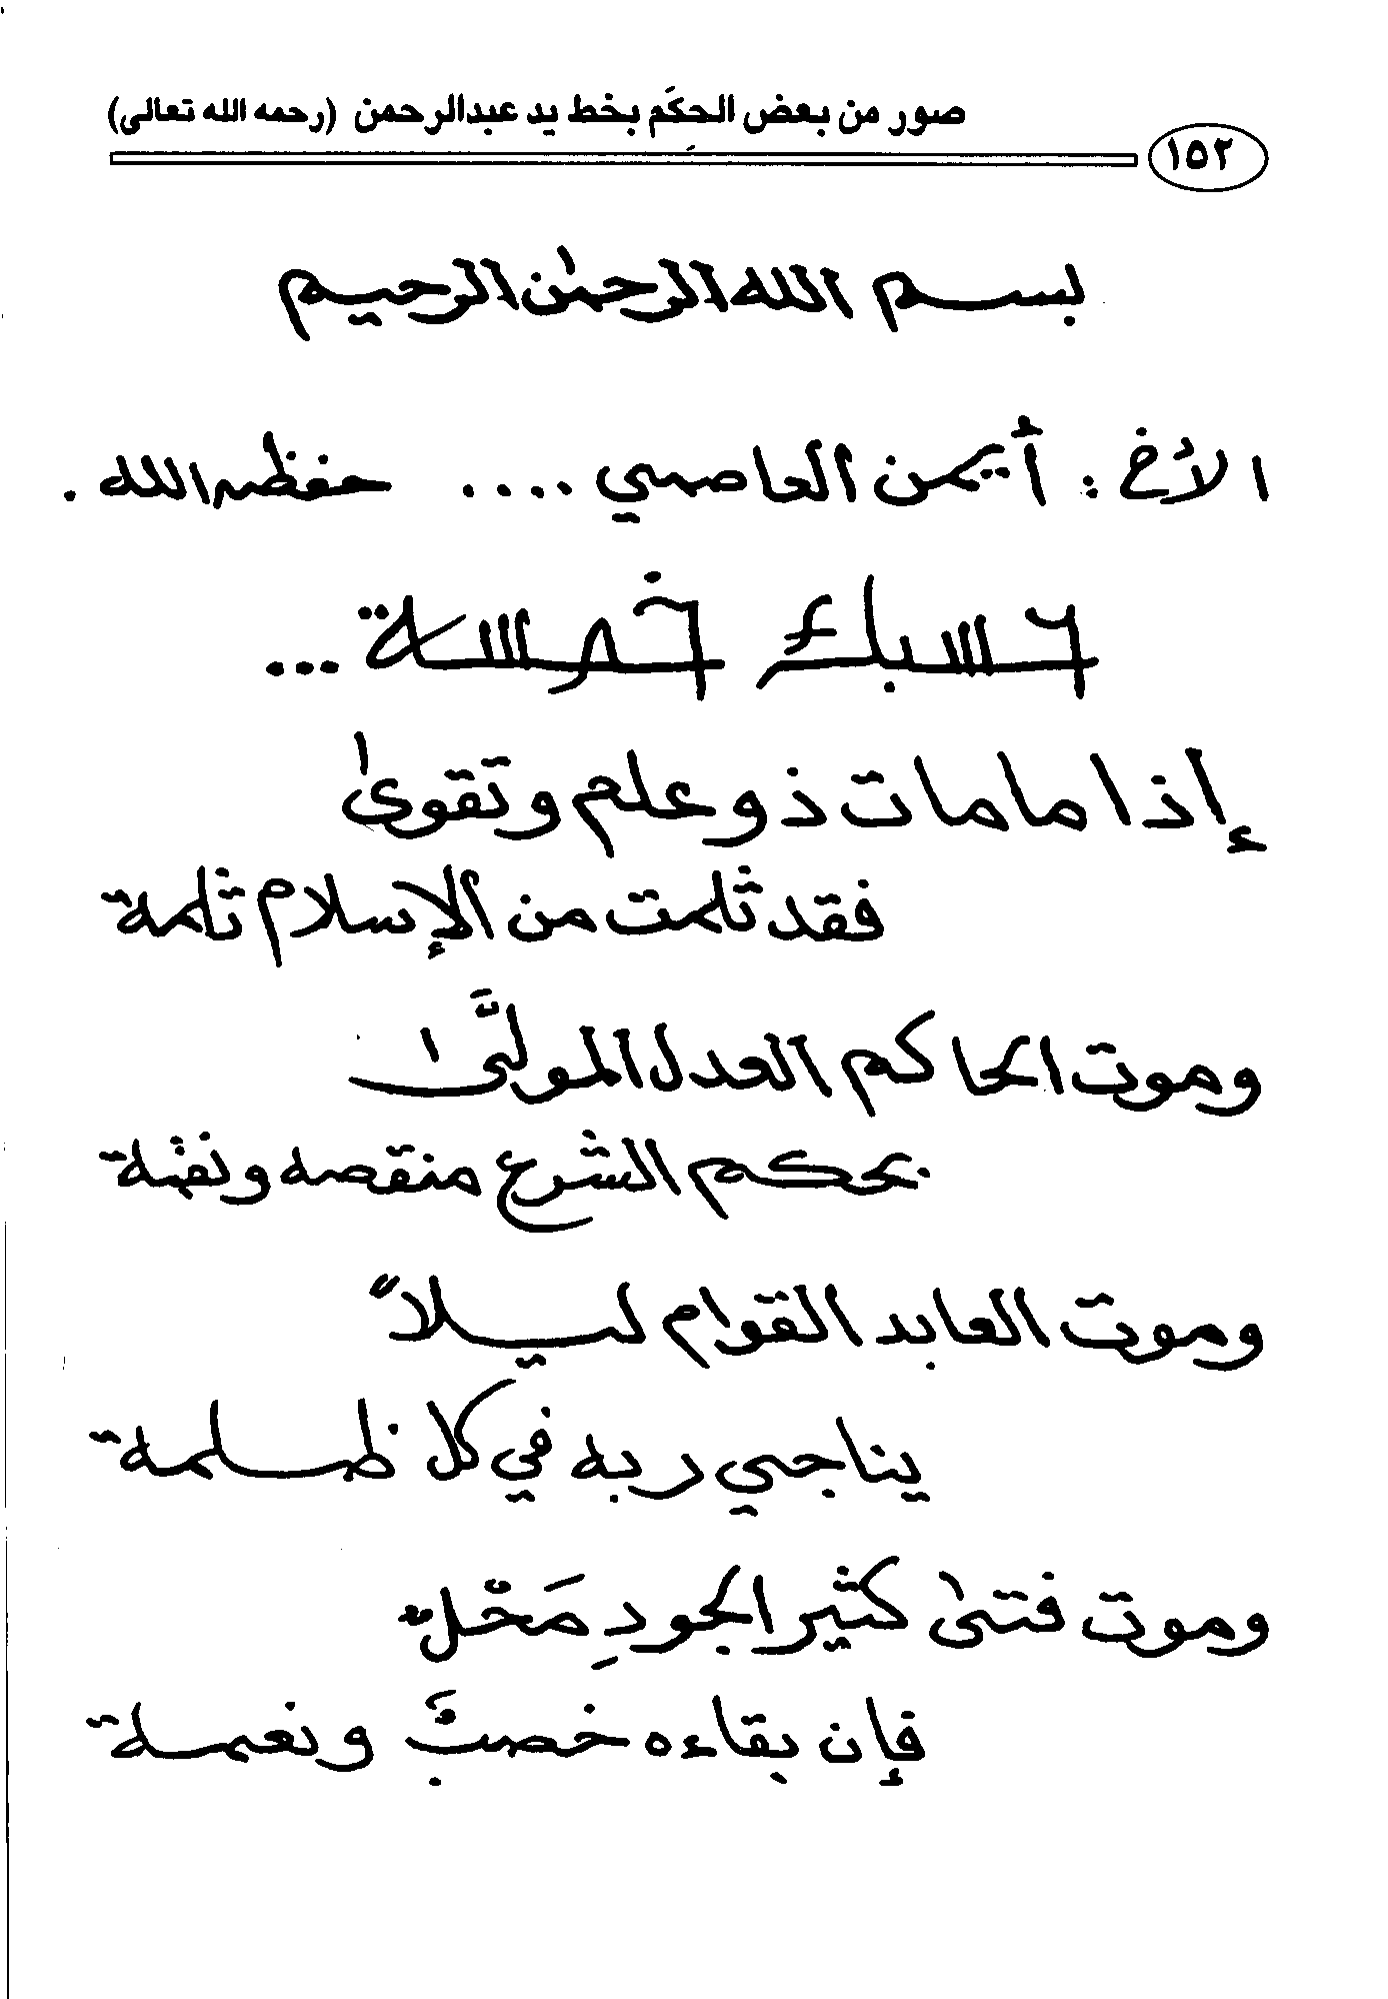 صور من بعض الحكَم بخط يد عبدالرحمن (رحمه الله تعالى)
١٥٢
بسم الله الرحمٰن الرحيم
الأخ : أيمن العاصمي .... حفظه الله .
حسبك خمسة ...
إذا ما مات ذو علم وتقوىٰ
فقد ثلمت من الإسلام ثلمة
وموت الحاكم العدل المولَّىٰ
بحكم الشرع منقصه ونقمة
وموت العابد القوام ليلاً
يناجي ربه في كل ظلمة
وموت فتىٰ كثير الجودِ مَحْلٌ
فإن بقاءه خصبٌ ونعمة